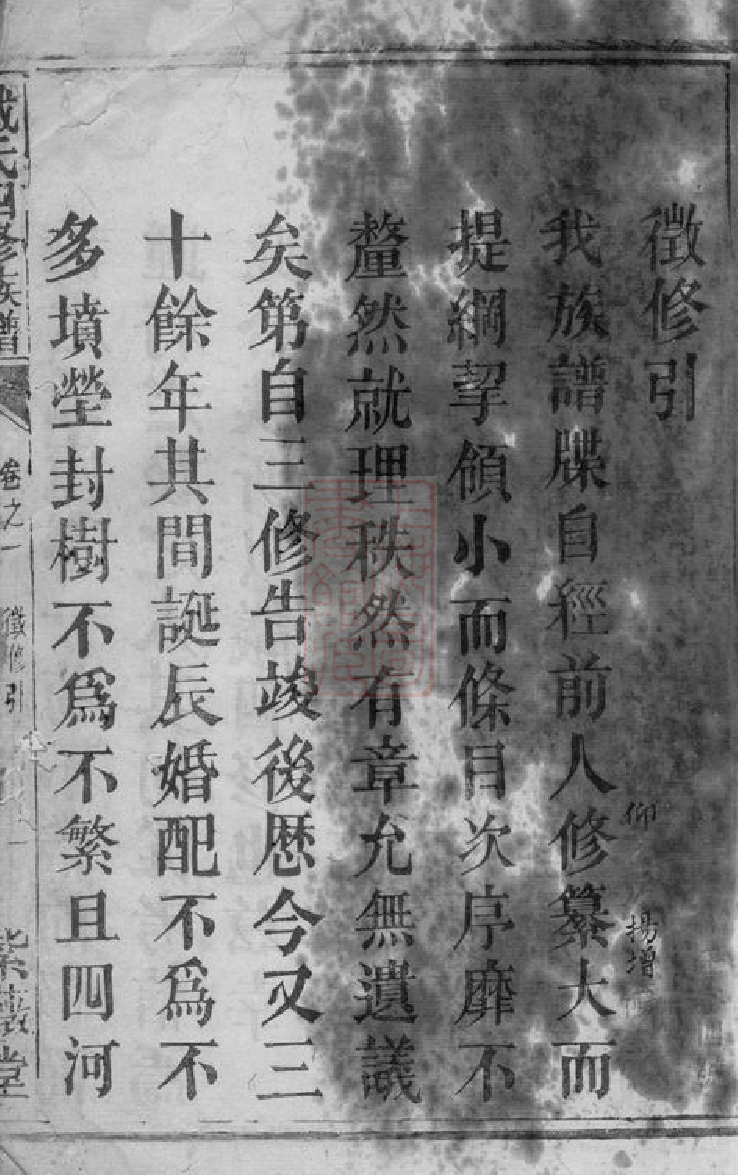 徵修引
我族譜牒自經前人修纂大而
仰
揚增
提綱挈領小而條目次序靡不
釐然就理秩然有章允無遺議
矣第自三修告竣後歷今又三
十餘年其間誕辰婚配不爲不
多墳塋封樹不爲不繁且四河
氏四修族譜
卷之一
徵修引
堂